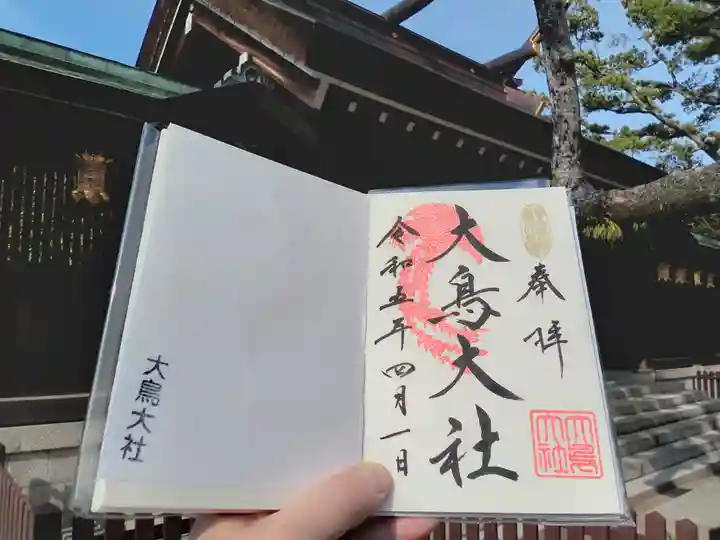 奉拝
大鳥大社
令和五年四月一日
大鳥大社
大鳥大社